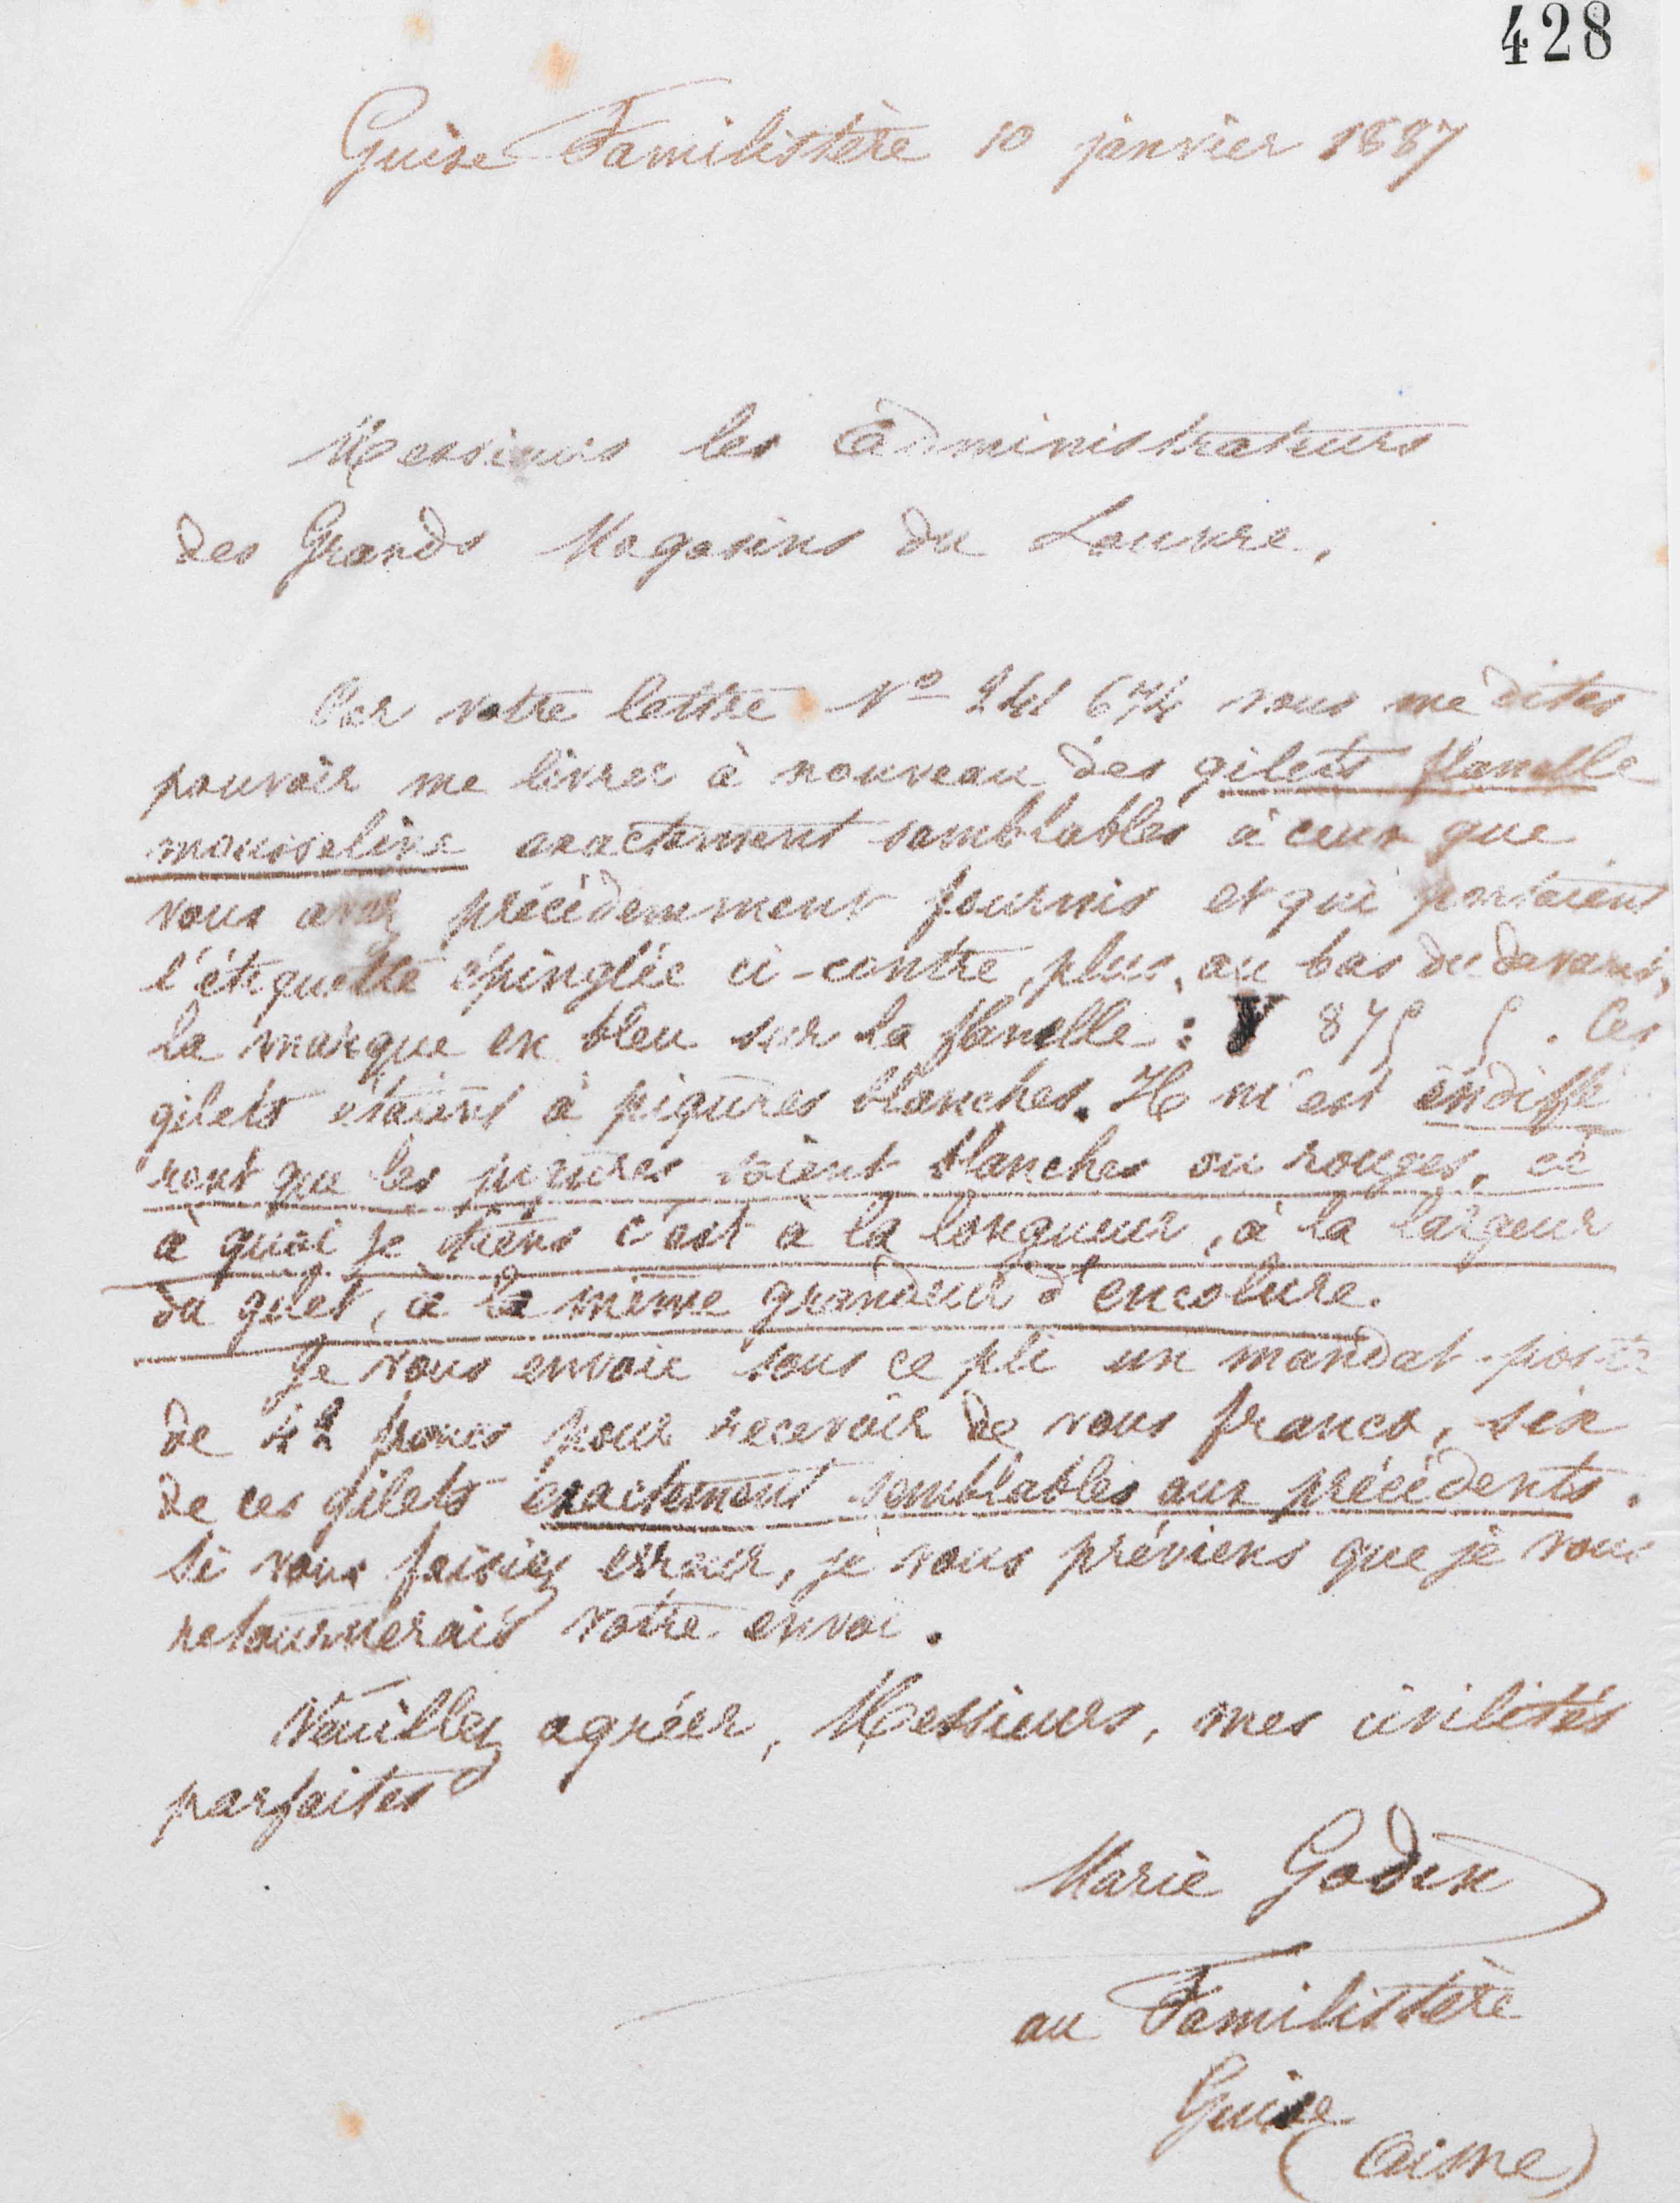 428
Guise Familistère 10 janvier 1887
Messieurs les administrateurs
des Grands Magasins du Louvre,
Par votre lettre N° 674 vous me dites
pouvoir me livrer à nouveau des gilets flanelle
mousseline exactement semblables à ceux que
vous avez précédemment fournis et qui portaient
l'étiquette épinglée ci-contre, plus, au bas du devant,
la marque en bleu sur la flanelle : 875 5. Ces
gilets étaient à piqûres blanches. Il m'est indiffé
rent que les piqûres soient blanches ou rouges, ce
à quoi je tiens c'est à la longueur, à la largeur
du gilet, à la même grandeur d'encolure.
Je vous envoie sous ce pli un mandat-poste
de 42 francs pour recevoir de vous franco, six
de ces gilets exactement semblables aux précédents.
Si vous faisiez erreur, je vous préviens que je vous
retournerais votre envoi.
Veuillez agréer, Messieurs, mes civilités
parfaites
Marie Godin
au Familistère
Guise
(Aisne)